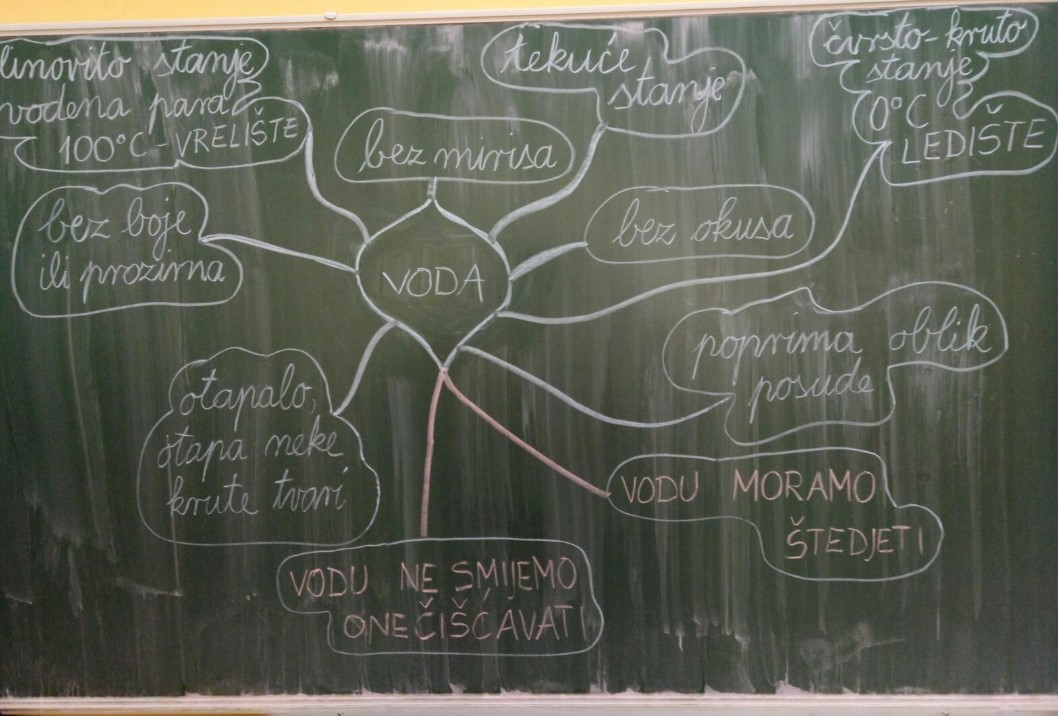 linovito stanje
vodena para
100°C - VRELIŠTE
bez mirisa
tekuće
stanje
čvrsto-kruto
stanje
0°C
LEDIŠTE
bez boje
ili prozirna
VODA
bez okusa
poprima oblik
posude
otapalo,
otapa neke
krute tvari
VODU MORAMO
ŠTEDJETI
VODU NE SMIJEMO
ONEČIŠĆAVATI